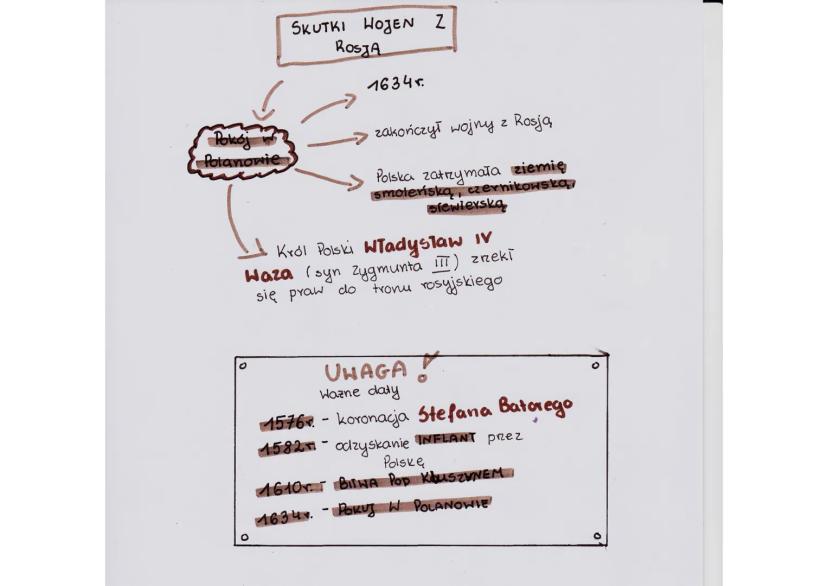 SKUTKI WOJEN Z
ROSJĄ
1634r.
Pokój w
Polanowie
zakończył wojny z Rosją
Polska zatrzymała ziemię
smoleńską, czernikowską,
siewierską
Król Polski Władysław IV
Waza (syn Zygmunta III) zrzekł
się praw do tronu rosyjskiego
UWAGA!
Ważne daty
1576r. - koronacja Stefana Batorego
1582r. - odzyskanie INFLANT przez
Polskę
1610r. - BITWA POD KŁUSZYNEM
1634r. - POKUJ W POLANOWIE